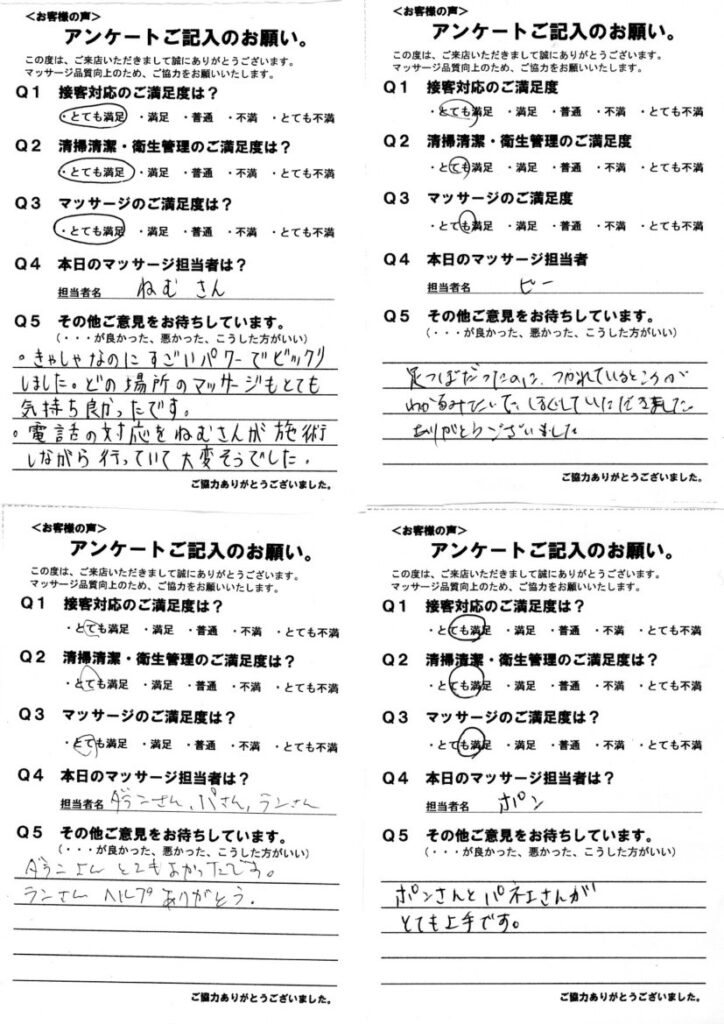 ＜お客様の声＞
アンケートご記入のお願い。
この度は、ご来店いただきまして誠にありがとうございます。
マッサージ品質向上のため、ご協力をお願いいたします。
Q1 接客対応のご満足度は？
・とても満足 ・満足 ・普通 ・不満 ・とても不満
Q2 清掃清潔・衛生管理のご満足度は？
・とても満足 ・満足 ・普通 ・不満 ・とても不満
Q3 マッサージのご満足度は？
・とても満足 ・満足 ・普通 ・不満 ・とても不満
Q4 本日のマッサージ担当者は？
担当者名 ねむさん
Q5 その他ご意見をお待ちしています。
（・・・が良かった、悪かった、こうした方がいい）
。きゃしゃなのにすごいパワーでビックリ
しました。どの場所のマッサージもとても
気持ち良かったです。
。電話の対応をねむさんが施術
しながら行っていて大変そうでした。
ご協力ありがとうございました。
＜お客様の声＞
アンケートご記入のお願い。
この度は、ご来店いただきまして誠にありがとうございます。
マッサージ品質向上のため、ご協力をお願いいたします。
Q1 接客対応のご満足度
・とても満足 ・満足 ・普通 ・不満 ・とても不満
Q2 清掃清潔・衛生管理のご満足度
・とても満足 ・満足 ・普通 ・不満 ・とても不満
Q3 マッサージのご満足度
・とても満足 ・満足 ・普通 ・不満 ・とても不満
Q4 本日のマッサージ担当者
担当者名 ビー
Q5 その他ご意見をお待ちしています。
（・・・が良かった、悪かった、こうした方がいい）
足つぼだったのに、つかれているところが
わかるみたいで、ほぐしていただきました
ありがとうございました
ご協力ありがとうございました。
＜お客様の声＞
アンケートご記入のお願い。
この度は、ご来店いただきまして誠にありがとうございます。
マッサージ品質向上のため、ご協力をお願いいたします。
Q1 接客対応のご満足度は？
・とても満足 ・満足 ・普通 ・不満 ・とても不満
Q2 清掃清潔・衛生管理のご満足度は？
・とても満足 ・満足 ・普通 ・不満 ・とても不満
Q3 マッサージのご満足度は？
・とても満足 ・満足 ・普通 ・不満 ・とても不満
Q4 本日のマッサージ担当者は？
担当者名 ダランさん、パさん、ランさん
Q5 その他ご意見をお待ちしています。
（・・・が良かった、悪かった、こうした方がいい）
ダランさんとてもよかったです。
ランさんヘルプありがとう.
ご協力ありがとうございました。
＜お客様の声＞
アンケートご記入のお願い。
この度は、ご来店いただきまして誠にありがとうございます。
マッサージ品質向上のため、ご協力をお願いいたします。
Q1 接客対応のご満足度は？
・とても満足 ・満足 ・普通 ・不満 ・とても不満
Q2 清掃清潔・衛生管理のご満足度は？
・とても満足 ・満足 ・普通 ・不満 ・とても不満
Q3 マッサージのご満足度は？
・とても満足 ・満足 ・普通 ・不満 ・とても不満
Q4 本日のマッサージ担当者は？
担当者名 ポン
Q5 その他ご意見をお待ちしています。
（・・・が良かった、悪かった、こうした方がいい）
ポンさんとパネエさんが
とても上手です。
ご協力ありがとうございました。